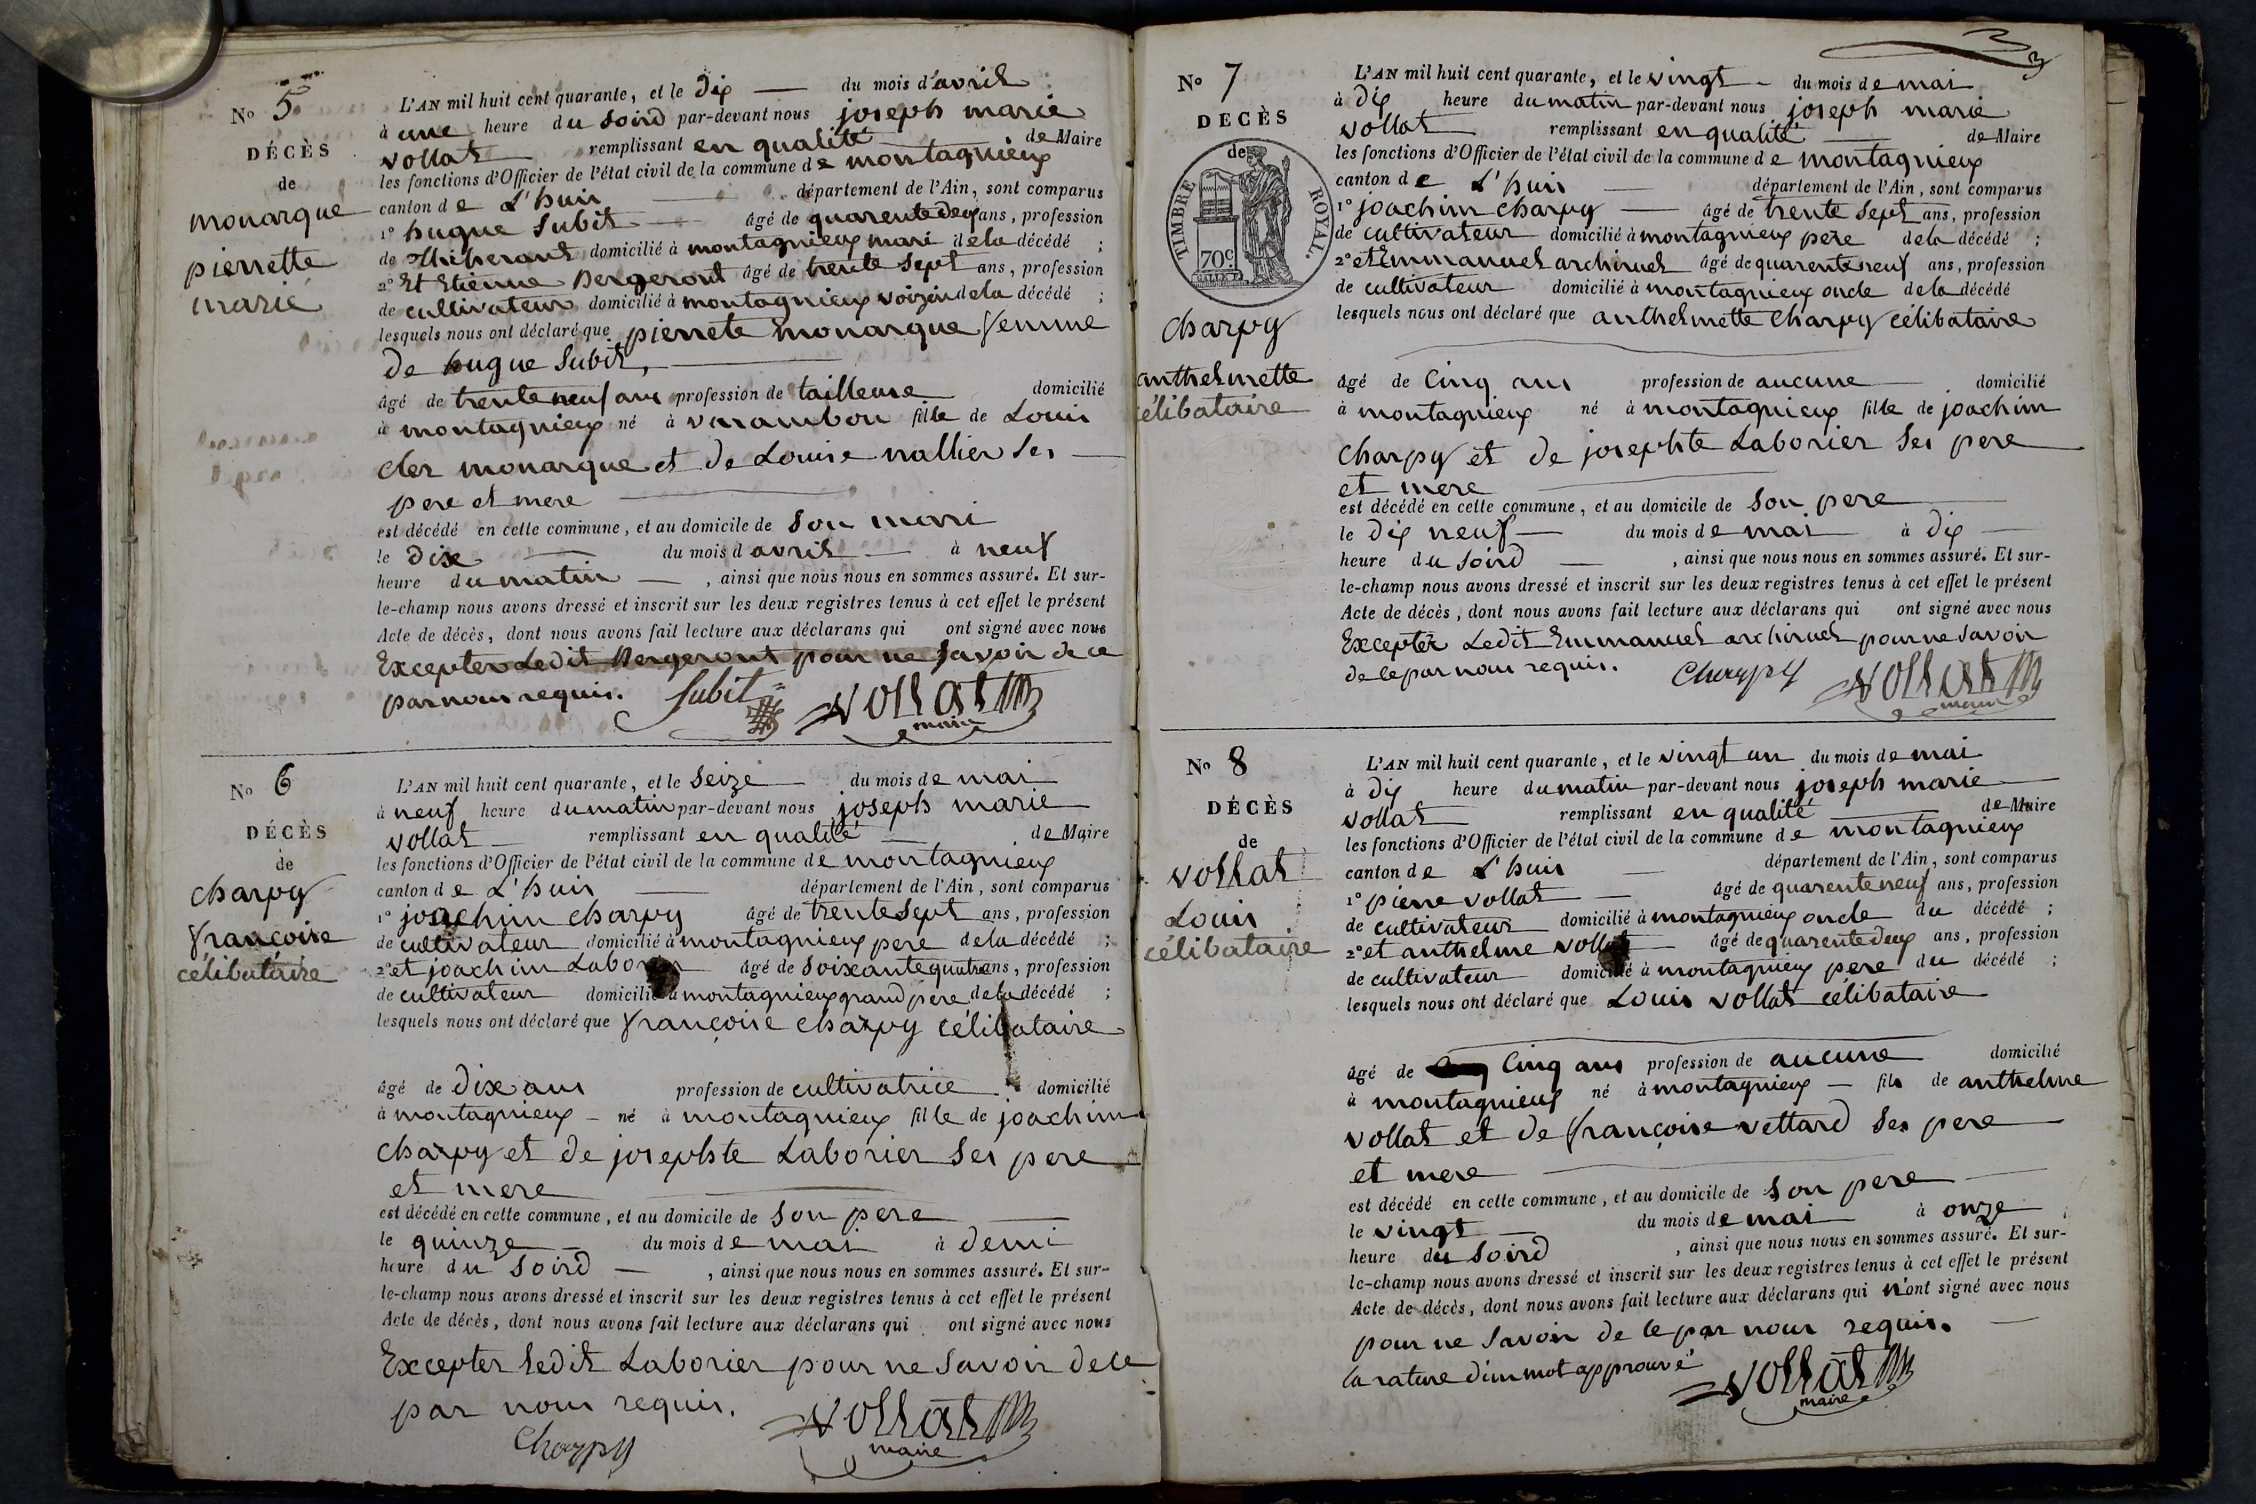 No 5
DÉCÈS
de
monarque
pierrette
marié
L'AN mil huit cent quarante, et le dix du mois d'avril
à une heure du soird par-devant nous joseph marie
vollat remplissant en qualité de Maire
les fonctions d'Officier de l'état civil de la commune de montagnieux
canton de L'huis département de l'Ain, sont comparus
1° hugue Subit âgé de quarente deux ans, profession
de domicilié à montagnieux mari de la décédé ;
2° Et Etienne Bergeront âgé de trente sept ans, profession
de cultivateur domicilié à montagnieux voizin de la décédé ;
lesquels nous ont déclaré que pierrete monarque femme
de hugue Subit,
âgé de trente neuf ans profession de tailleuse domicilié
à montagnieux né à varambon fille de Louis
cler monarque et de Louise nallier ses
pere et mere
est décédé en cette commune, et au domicile de son mari
le dixe du mois d avril à neuf
heure du matin , ainsi que nous nous en sommes assuré. Et sur-
le-champ nous avons dressé et inscrit sur les deux registres tenus à cet effet le présent
Acte de décès, dont nous avons fait lecture aux déclarans qui ont signé avec nous
Excepter Ledit Bergeront pour ne savoir de ce
par nous requis. Subit vollat
maire
No 6
DÉCÈS
de
charpy
françoise
célibataire
L'AN mil huit cent quarante, et le seize du mois de mai
à neuf heure du matin par-devant nous joseph marie
vollat remplissant en qualité de Maire
les fonctions d'Officier de l'état civil de la commune de montagnieux
canton de L'huis département de l'Ain, sont comparus
1° joachim charpy âgé de trente sept ans, profession
de cultivateur domicilié à montagnieux pere de la décédé ;
2° et joachim Laborier âgé de soixante quatre ans, profession
de cultivateur domicilié à montagnieux grand pere de la décédé ;
lesquels nous ont déclaré que françoise charpy célibataire
âgé de dixe ans profession de cultivatrice domicilié
à montagnieux né à montagnieux fille de joachim
charpy et de josephte Laborier ses pere
et mere
est décédé en cette commune, et au domicile de son pere
le quinze du mois de mai à demi
heure du soird , ainsi que nous nous en sommes assuré. Et sur-
le-champ nous avons dressé et inscrit sur les deux registres tenus à cet effet le présent
Acte de décès, dont nous avons fait lecture aux déclarans qui ont signé avec nous
Excepter Ledit Laborier pour ne savoir de ce
par nous requis. vollat
Charpy maire
3
No 7
DECÈS
de
TIMBRE ROYAL.
70c
charpy
anthelmette
célibataire
L'AN mil huit cent quarante, et le vingt du mois de mai
à dix heure du matin par-devant nous joseph marie
vollat remplissant en qualité de Maire
les fonctions d'Officier de l'état civil de la commune de montagnieux
canton de L'huis département de l'Ain, sont comparus
1° joachim charpy âgé de trente sept ans, profession
de cultivateur domicilié à montagnieux pere de la décédé ;
2° et Emmanuel archiruel âgé de quarente neuf ans, profession
de cultivateur domicilié à montagnieux oncle de la décédé
lesquels nous ont déclaré que anthelmette charpy célibataire
âgé de Cinq ans profession de aucune domicilié
à montagnieux né à montagnieux fille de joachim
charpy et de josephte Laborier ses pere
et mere
est décédé en cette commune, et au domicile de son pere
le dix neuf du mois de mai à dix
heure du soird , ainsi que nous nous en sommes assuré. Et sur-
le-champ nous avons dressé et inscrit sur les deux registres tenus à cet effet le présent
Acte de décès, dont nous avons fait lecture aux déclarans qui ont signé avec nous
Excepter Ledit Emmanuel archiruel pour ne savoir
de ce par nous requis. Charpy vollat
maire
No 8
DÉCÈS
de
vollat
Louis
célibataire
L'AN mil huit cent quarante, et le vingt un du mois de mai
à dix heure du matin par-devant nous joseph marie
vollat remplissant en qualité de Maire
les fonctions d'Officier de l'état civil de la commune de montagnieux
canton de L'huis département de l'Ain, sont comparus
1° pierre vollat âgé de quarente neuf ans, profession
de cultivateur domicilié à montagnieux oncle du décédé ;
2° et anthelme vollat âgé de quarente deux ans, profession
de cultivateur domicilié à montagnieux pere du décédé ;
lesquels nous ont déclaré que Louis vollat célibataire
âgé de Cinq ans profession de aucune domicilié
à montagnieux né à montagnieux fils de anthelme
vollat et de françoise vettard ses pere
et mere
est décédé en cette commune, et au domicile de son pere
le vingt du mois de mai à onze
heure du soird , ainsi que nous nous en sommes assuré. Et sur-
le-champ nous avons dressé et inscrit sur les deux registres tenus à cet effet le présent
Acte de décès, dont nous avons fait lecture aux déclarans qui n'ont signé avec nous
pour ne savoir de ce par nous requis.
la rature d'un mot approuvé vollat
maire